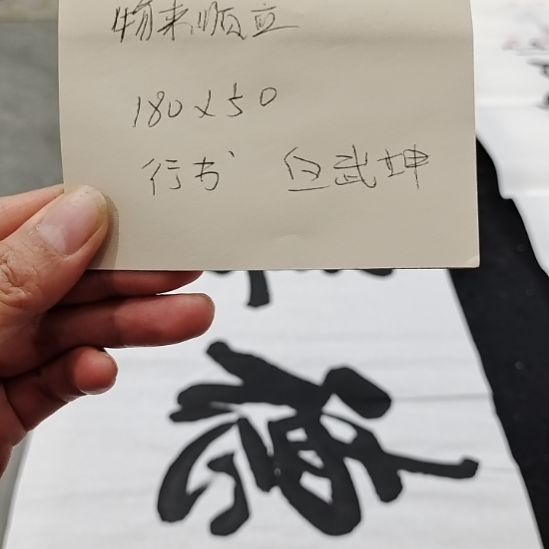 物来顺应
180×50
行书 白武坤